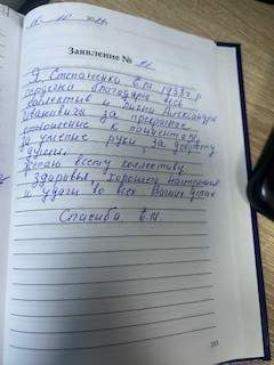 Заявление № 21
Я Степаненко Е.М 1938 г
сердечно благодарю весь
коллектив и Александра
Ивановича за прекрасное
отношение к пациентам,
За умелые руки, за доброту
души.
Желаю всему коллективу
здоровья, хорошего настроения
и удачи во всех Ваших делах
Спасибо Е.М.